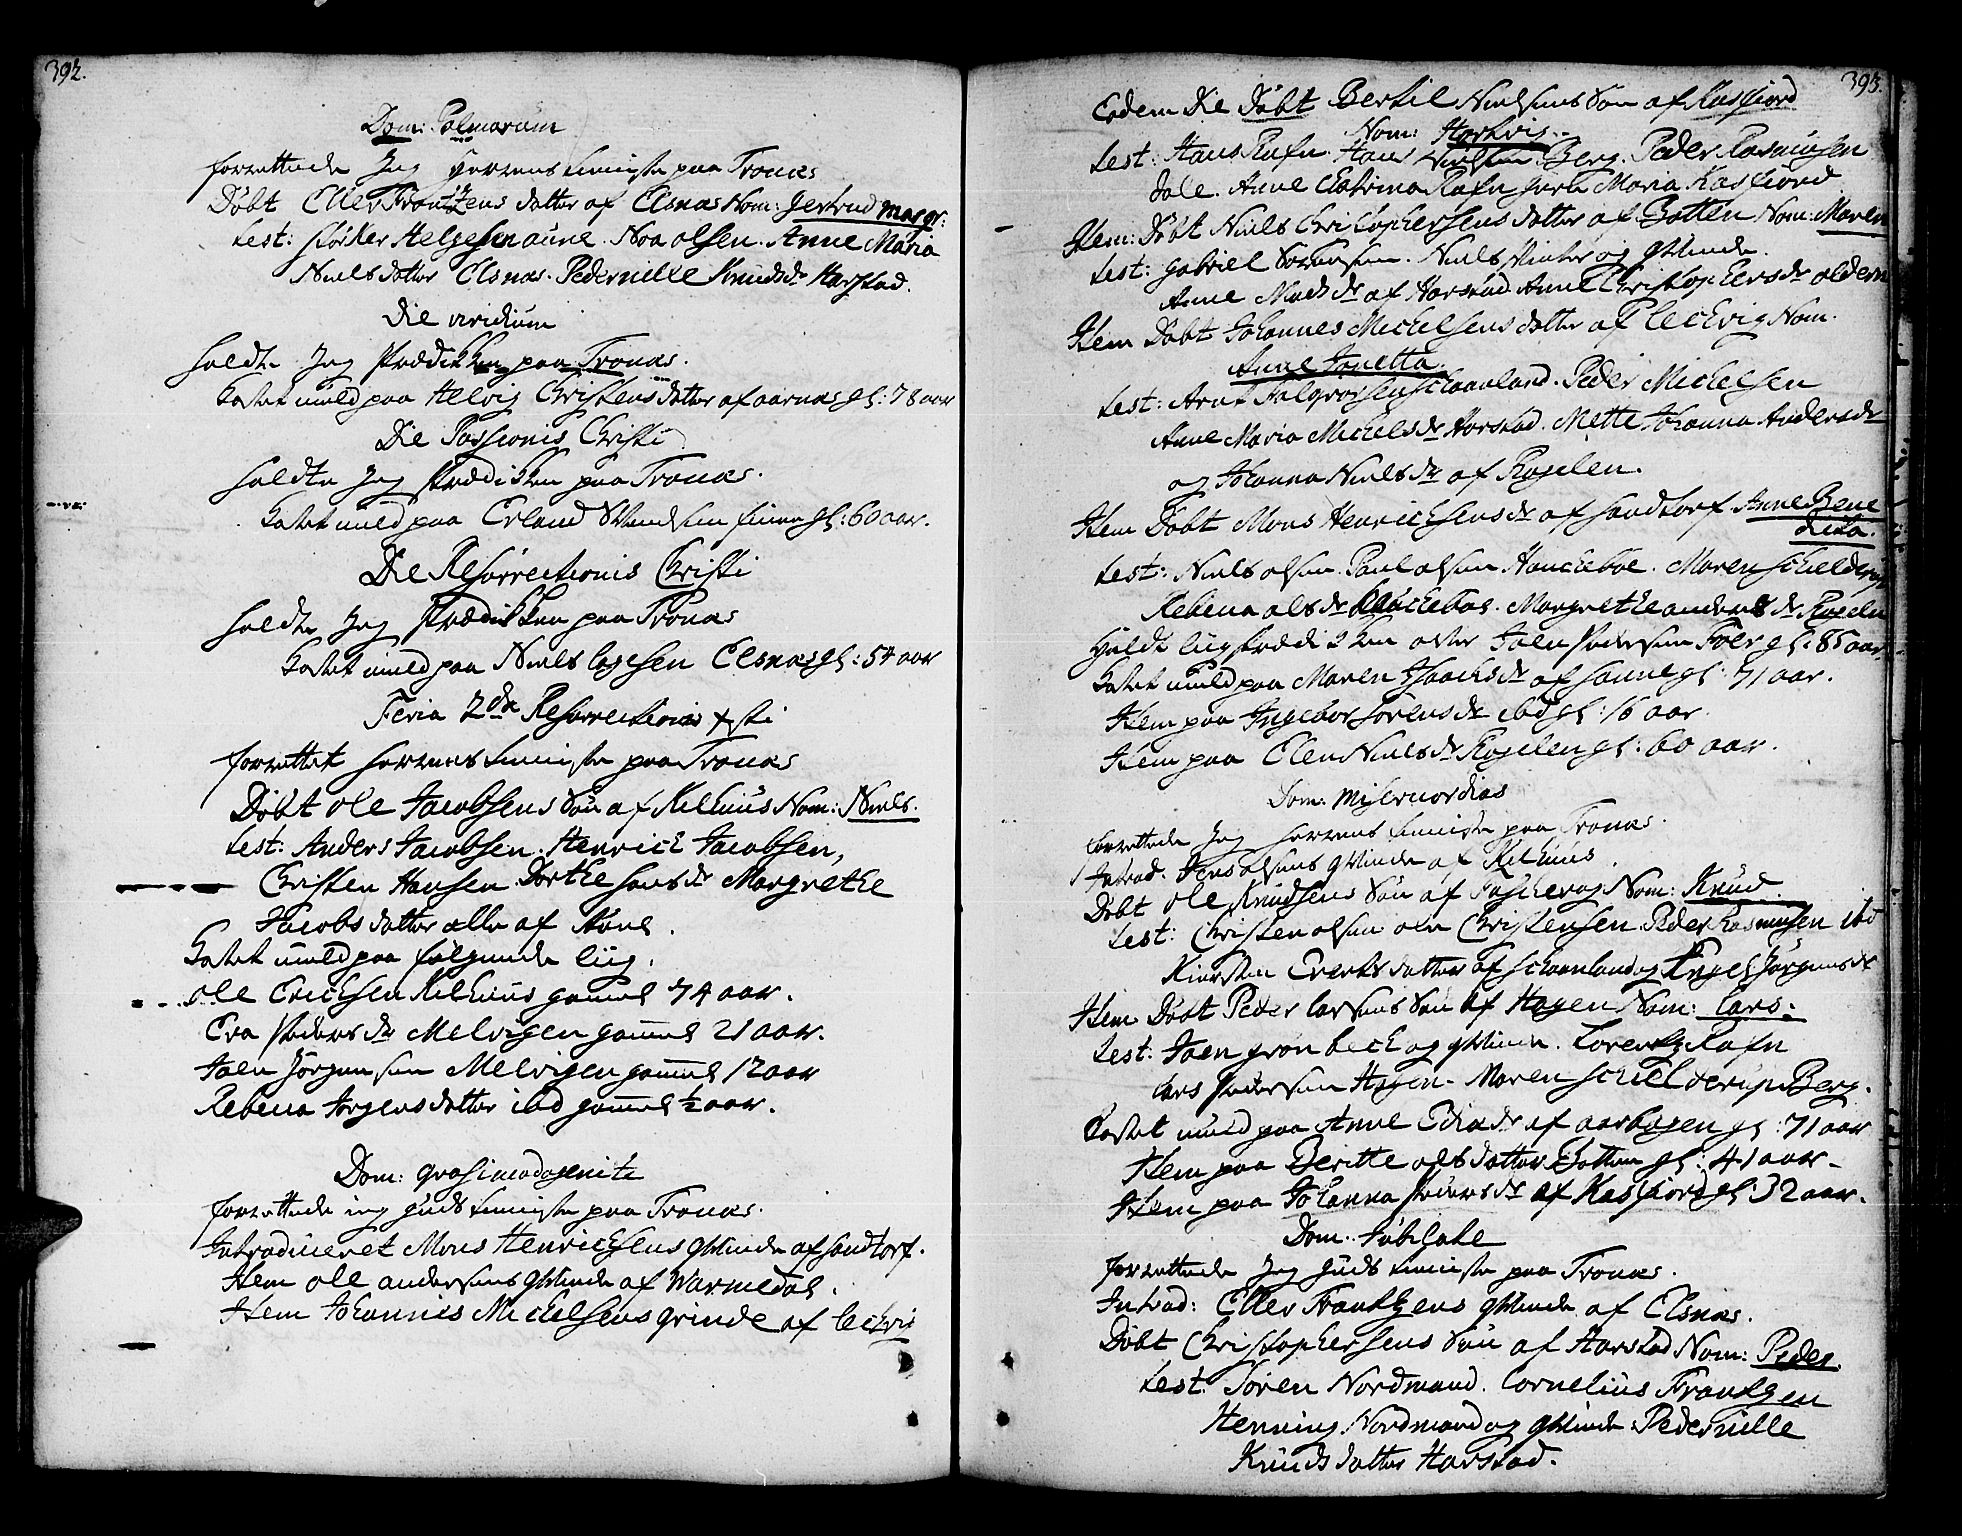 392.
Dom: Palmarum
forrettede Jeg Herrens tienniste paa Tronæs
Døbt Eller Frantzens datter af Elsnæs Nom: Gertrud margr:
test: Størker Helgesen aune. Noa olsen. Anne Maria
Niels datter Elsnæs. Pedernille Knuds dr Harstad.
Die viridium
holdte Jeg Prædikken paa Tronæs.
Kastet muld paa Helvig Christens datter af aarnæs gl: 78 aar
Die Passionis Christi
holdte Jeg Prædikken paa Tronæs.
Kastet muld paa Erland Svendsen finn gl: 60 aar.
Die Resurrectionis Christi
holdte Jeg Prædikken paa Tronæs
Kastet muld paa Niels lagesen Elsnæs gl: 54 aar
Feria 2da Resurrectionis Xsti
forrettet herrens tienniste paa Tronæs
Døbt ole Jacobsens Søn af Kilhuus Nom: Niels.
test: Anders Jacobsen. Henrich Jacobsen,
Christen Hansen. Dorthe hans dr Margrethe
Jacobs datter alle af
Kastet muld paa følgende liig.
ole Erichsen Kilhuus gamel 74 aar.
Eva Peders dr Melvigen gamel 21 aar.
Joen Jørgensen Melvigen gamel 12 aar
Rebena Jørgens datter ibd gamel ½ aar.
Dom: qvasimodogeniti
forrettede ieg guds tienniste paa Tronæs.
Introduceret Mons Henrichsens qvinde af Sandtorf.
Item ole andersens qvinde af Warmedal.
Item Johannis Michelsens qvinde af lechvig
393.
Eodem Die Døbt Bertil Nielsens Søn af Kasfiord
Nom: Hartvig.
test: Hans Rafn. Hans Nielsen Berg. Peder Rasmusen
dale. Anne Catrina Rafn Maria Kasfiord
Item: Døbt Niels Christophersens datter af Botten Nom: Maren
test: gabriel Sørensen. Niels Winter og qvinde.
Anne Mads dr af Harstad. Anne Christophers dr
Item Døbt Johannes Michelsens datter af lechvig Nom.
Anne Janetta.
test: Arnt schaanland. Peder Michelsen
Anne Maria Michels dr Harstad. Mette Johanna Anders dr
og Johanna Niels dr af Rogelen.
Item Døbt Mons Henrichsens dr af Sandtorf Anne Bene
dicta.
test: Niels olsen. Paul olsen Hancheboe. Maren
Rebena ols dr. Margrethe anders dr Rogelen
Holdt liigprædikken over Joen Pedersen gl: 85 aar.
Kastet muld paa Maren Isaachs dr af gl: 71 aar.
Item paa Ingebor Sørens dr ibd gl: 16 aar.
Item paa Elen Niels dr Rogelen gl: 60 aar.
Dom: Misericordias
forrettede Jeg Herrens tienniste paa Tronæs.
Introd: Jens olsens qvinde af Kilhuus.
Døbt ole Knudsens Søn af Nom: Knud.
test: Christen olsen. ole Christensen. Peder Rasmusen ibd
Kiersten Erichs datter af schaanland og Engel Jørgens dr
Item Døbt Peder larsens Søn af Hagen Nom: lars.
test: Joen grønbech og qvinde. Lorentz Rafn
lars Pedersen Hagen. Maren schielderup Berg.
Kastet muld paa Anne dr af aarbogen gl: 71 aar
Item paa Beritte ols datter Botten gl: 41 aar.
Item paa Johanna Peders dr af Kasfiord gl: 32 aar.
Dom: Jubilate
forrettede Jeg guds tienniste paa Tronæs.
Introd: Eller Frantzens qvinde af Elsnæs.
Døbt Christophersens Søn af Harstad Nom: Peder.
test: Søren Nordmand. Cornelius Frantzen
Henning Nordmand og qvinde. Pedernille
Knuds datter Harstad.